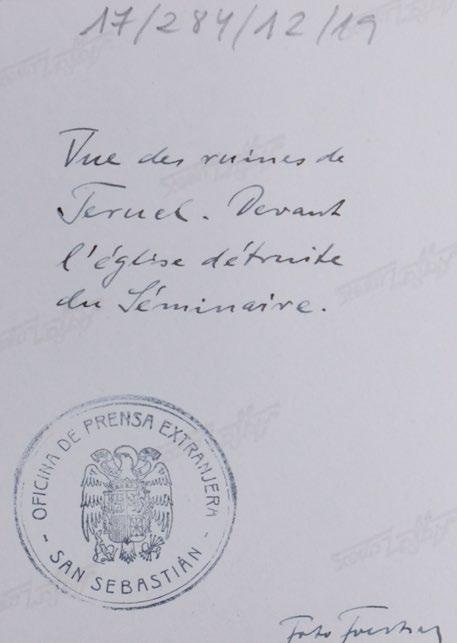 17/284/12/19
Vue des ruines de
Teruel. Devant
l'église détruite
du Séminaire.
OFICINA DE PRENSA EXTRANJERA
- SAN SEBASTIÁN -
Foto